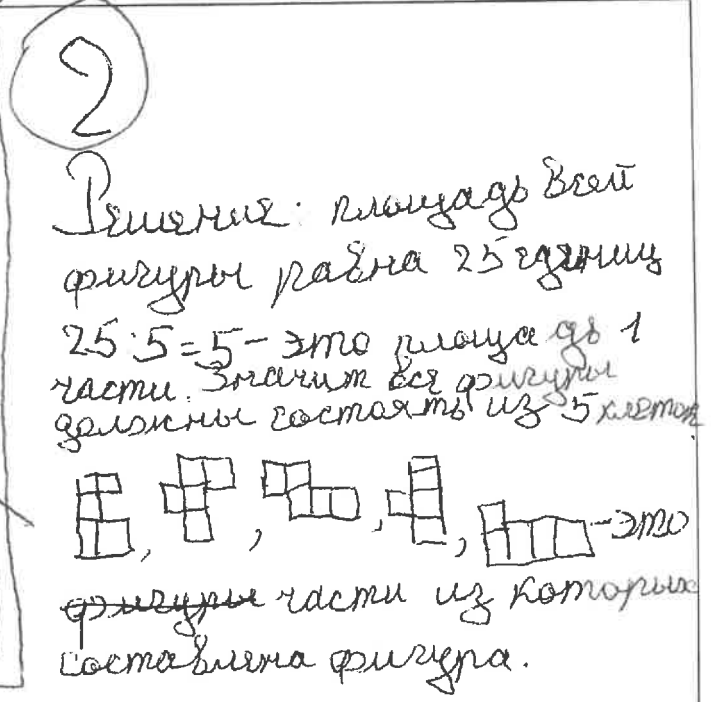 2
Решение: площадь всей
фигуры равна 25 единиц
25:5=5 - это площадь 1
части. Значит все фигуры
должны состоять из 5 клеток.
, , , , - это
фигуры части из которых
составлена фигура.